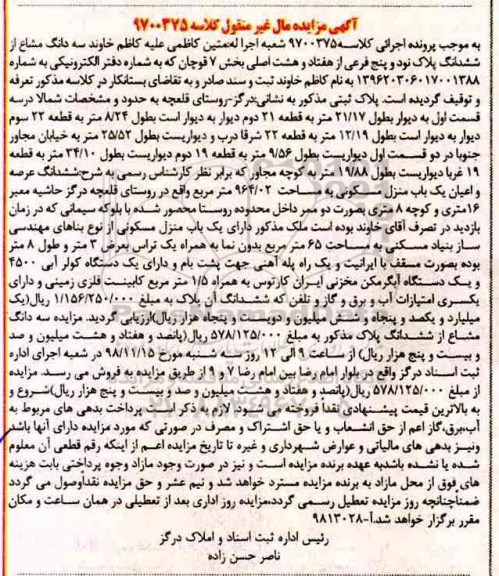 آگهی مزایده مال غیر منقول کلاسه ۹۷۰۰۳۷۵
به موجب پرونده اجرائی کلاسه۹۷۰۰۳۷۵ شعبه اجرا له:متین کاظمی علیه کاظم خاوند سه دانگ مشاع از
ششدانگ پلاک نود و پنج فرعی از هفتاد و هشت اصلی بخش ۷ قوچان که به شماره دفتر الکترونیکی به شماره
۱۳۹۶۲۰۳۰۶۰۱۷۰۰۱۳۸۸ به نام کاظم خاوند ثبت و سند صادر و به تقاضای بستانکار در کلاسه مذکور تعرفه
و توقیف گردیده است. پلاک ثبتی مذکور به نشانی:درگز-روستای قلعچه به حدود و مشخصات شمالا درسه
قسمت اول به دیوار بطول ۲۱/۱۷ متر به قطعه ۲۱ دوم دیوار به دیوار است بطول ۸/۲۴ متر به قطعه ۲۲ سوم
دیوار به دیوار است بطول ۱۲/۱۹ متر به قطعه ۲۲ شرقا درب و دیواریست بطول ۲۵/۵۲ متر به خیابان مجاور
جنوبا در دو قسمت اول دیواریست بطول ۹/۵۶ متر به قطعه ۱۹ دوم دیواریست بطول ۳۴/۱۰ متر به قطعه
۱۹ غربا دیواریست بطول ۱۹/۸۸ متر به کوچه مجاور که برابر نظر کارشناس رسمی به شرح:ششدانگ عرصه
و اعیان یک باب منزل مسکونی به مساحت ۹۶۴/۰۲ متر مربع واقع در روستای قلعچه درگز حاشیه معبر
۱۶متری و کوچه ۸ متری بصورت دو ممر داخل محدوده روستا محصور شده با بلوکه سیمانی که در زمان
بازدید در تصرف آقای خاوند بوده است ملک مذکور دارای یک باب منزل مسکونی از نوع بناهای مهندسی
ساز بنیاد مسکنی به مساحت ۶۵ متر مربع بدون نما به همراه یک تراس بعرض ۳ متر و طول ۸ متر
بوده بصورت مسقف با ایرانیت و یک راه پله آهنی جهت پشت بام و دارای یک دستگاه کولر آبی ۴۵۰۰
و یک دستگاه آبگرمکن مخزنی ایران کارتوس به همراه ۱/۵ متر مربع کابینت فلزی زمینی و دارای
یکسری امتیازات آب و برق و گاز و تلفن که ششدانگ آن پلاک به مبلغ ۱/۱۵۶/۲۵۰/۰۰۰ ریال(یک
میلیارد و یکصد و پنجاه وشش میلیون و دویست و پنجاه هزار ریال)ارزیابی گردید. مزایده سه دانگ
مشاع از ششدانگ پلاک مذکور به مبلغ ۵۷۸/۱۲۵/۰۰۰ ریال(پانصد و هفتاد و هشت میلیون و صد
و بیست و پنج هزار ریال) از ساعت ۹ الی ۱۲ روز سه شنبه مورخ ۹۸/۱۱/۱۵ در شعبه اجرای اداره
ثبت اسناد درگز واقع در بلوار امام رضا بین امام رضا ۷ و ۹ از طریق مزایده به فروش می رسد. مزایده
از مبلغ ۵۷۸/۱۲۵/۰۰۰ ریال(پانصد و هفتاد و هشت میلیون و صد و بیست و پنج هزار ریال)شروع و
به بالاترین قیمت پیشنهادی نقدا فروخته می شود. لازم به ذکر است پرداخت بدهی های مربوط به
آب،برق،گاز اعم از حق انشعاب و یا حق اشتراک و مصرف در صورتی که مورد مزایده دارای آنها باشد
ونیز بدهی های مالیاتی و عوارض شهرداری و غیره تا تاریخ مزایده اعم از اینکه رقم قطعی آن معلوم
شده یا نشده باشدبه عهده برنده مزایده است و نیز در صورت وجود مازاد وجوه پرداختی بابت هزینه
های فوق از محل مازاد به برنده مزایده مسترد خواهد شد و نیم عشر و حق مزایده نقدأوصول می گردد
ضمناچنانچه روز مزایده تعطیل رسمی گردد،مزایده روز اداری بعد از تعطیلی در همان ساعت و مکان
مقرر برگزار خواهد شد.آ-۹۸۱۳۰۲۸
رئیس اداره ثبت اسناد و املاک درگز
ناصر حسن زاده